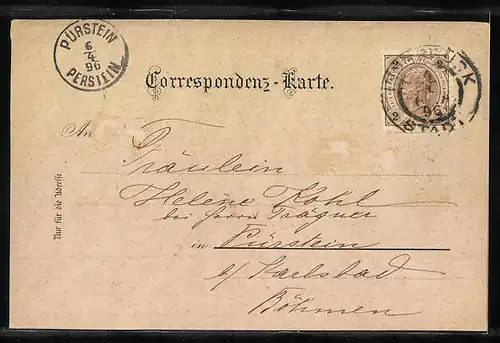 PÜRSTEIN
6
4
96
PERSTEIN
Correspondenz-Karte.
An
Fräulein
Helene Kohl
bei Herrn Trägner
in Pürstein
b/ Karlsbad
Böhmen
Nur für die Adresse
96
STADT